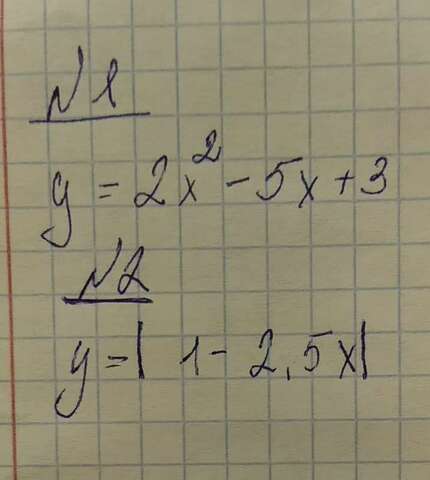 №1
y = 2x² - 5x + 3
№2
y = | 1 - 2,5x|